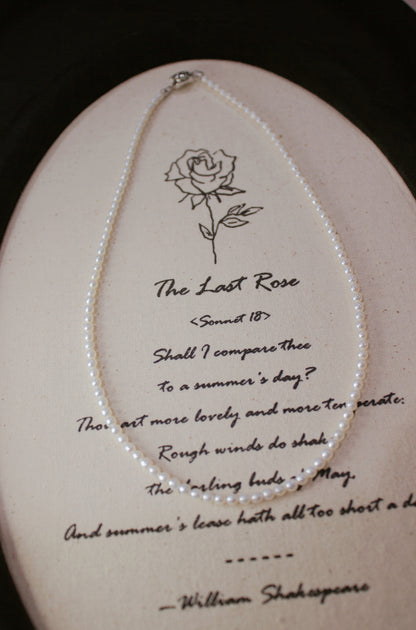 The Last Rose
<Sonnet 18>
Shall I compare thee
to a summer's day?
Thou art more lovely and more temperate:
Rough winds do shake
the darling buds of May,
And summer's lease hath all too short a
------
—William Shakespeare